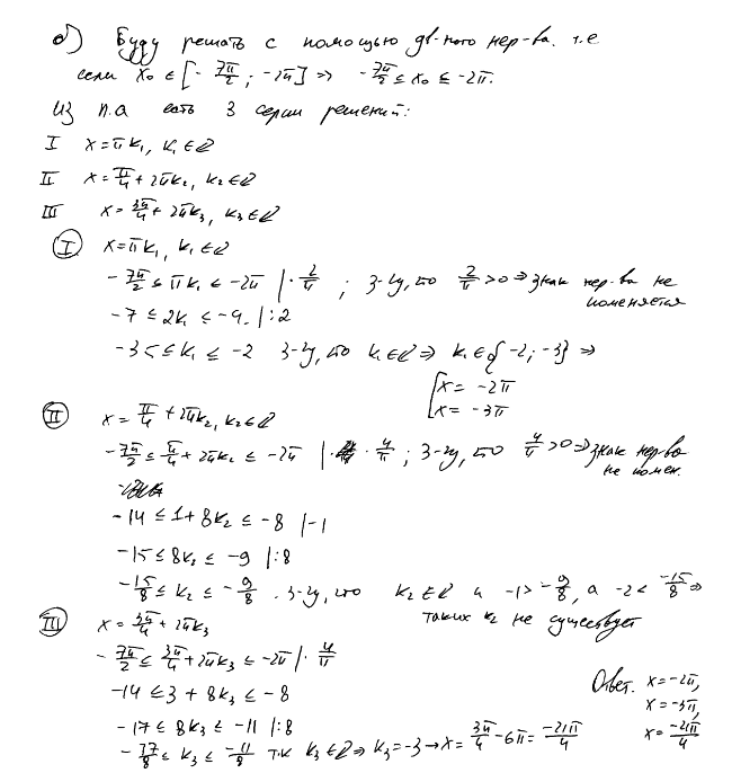 б) Буду решать с помощью дв-ного нер-ва. т.е
если x₀ ∈ [-7π/2; -2π] ⇒ -7π/2 ≤ x₀ ≤ -2π.
Из п.а есть 3 серии решений:
I x = πk₁, k₁ ∈ Z
II x = π/4 + 2πk₂, k₂ ∈ Z
III x = 3π/4 + 2πk₃, k₃ ∈ Z
I x = πk₁, k₁ ∈ Z
-7π/2 ≤ πk₁ ≤ -2π | · 2/π ; З-чу, что 2/π > 0 ⇒ знак нер-ва не
поменяется
-7 ≤ 2k₁ ≤ -4. |:2
-3,5 ≤ k₁ ≤ -2 З-чу, что k₁ ∈ Z ⇒ k₁ ∈ {-2; -3} ⇒
[x = -2π
[x = -3π
II x = π/4 + 2πk₂, k₂ ∈ Z
-7π/2 ≤ π/4 + 2πk₂ ≤ -2π | · 4/π ; З-чу, что 4/π > 0 ⇒ знак нер-ва
не помен.
-14 ≤ 1 + 8k₂ ≤ -8 |-1
-15 ≤ 8k₂ ≤ -9 |:8
-15/8 ≤ k₂ ≤ -9/8 . З-чу, что k₂ ∈ Z и -1 > -9/8, а -2 < -15/8 ⇒
таких k₂ не существует
III x = 3π/4 + 2πk₃
-7π/2 ≤ 3π/4 + 2πk₃ ≤ -2π | · 4/π
-14 ≤ 3 + 8k₃ ≤ -8
-17 ≤ 8k₃ ≤ -11 |:8
-17/8 ≤ k₃ ≤ -11/8 т.к k₃ ∈ Z ⇒ k₃ = -3 → x = 3π/4 - 6π = -21π/4
Ответ. x = -2π,
x = -3π,
x = -21π/4